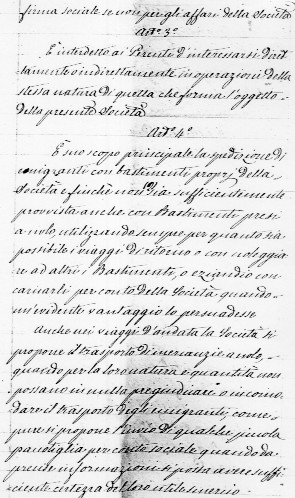 firma sociale se non per gli affari della Società
Art. 3°
È interdetto ai Gerenti d'interessarsi diret
tamente o indirettamente in operazioni della
stessa natura di quella che forma l'oggetto
della presente Società
Art. 4°
È suo scopo principale la spedizione di
emigranti con bastimenti proprj della
Società e finchè non sia sufficientemente
provvista anche con Bastimenti presi
a nolo utilizzando sempre per quanto sia
possibile i viaggi di ritorno o con noleggia
re ad altri i Bastimenti, o eziandio con
caricarli per conto della Società quando
un'evidente vantaggio lo persuadesse
Anche nei viaggi d'andata la Società si
propone il trasporto di mercanzie a nolo,
quando per la loro natura e quantità non
possano in nulla pregiudicare o incomo
dare il trasporto degli emigranti, come
pure si propone l'invio di qualche piccola
pacotiglia per conto sociale quando da
prese informazioni si possa avere suffi
ciente certezza del loro utile smercio